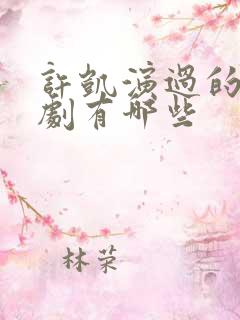 許凱演過的
劇有哪些
林荣